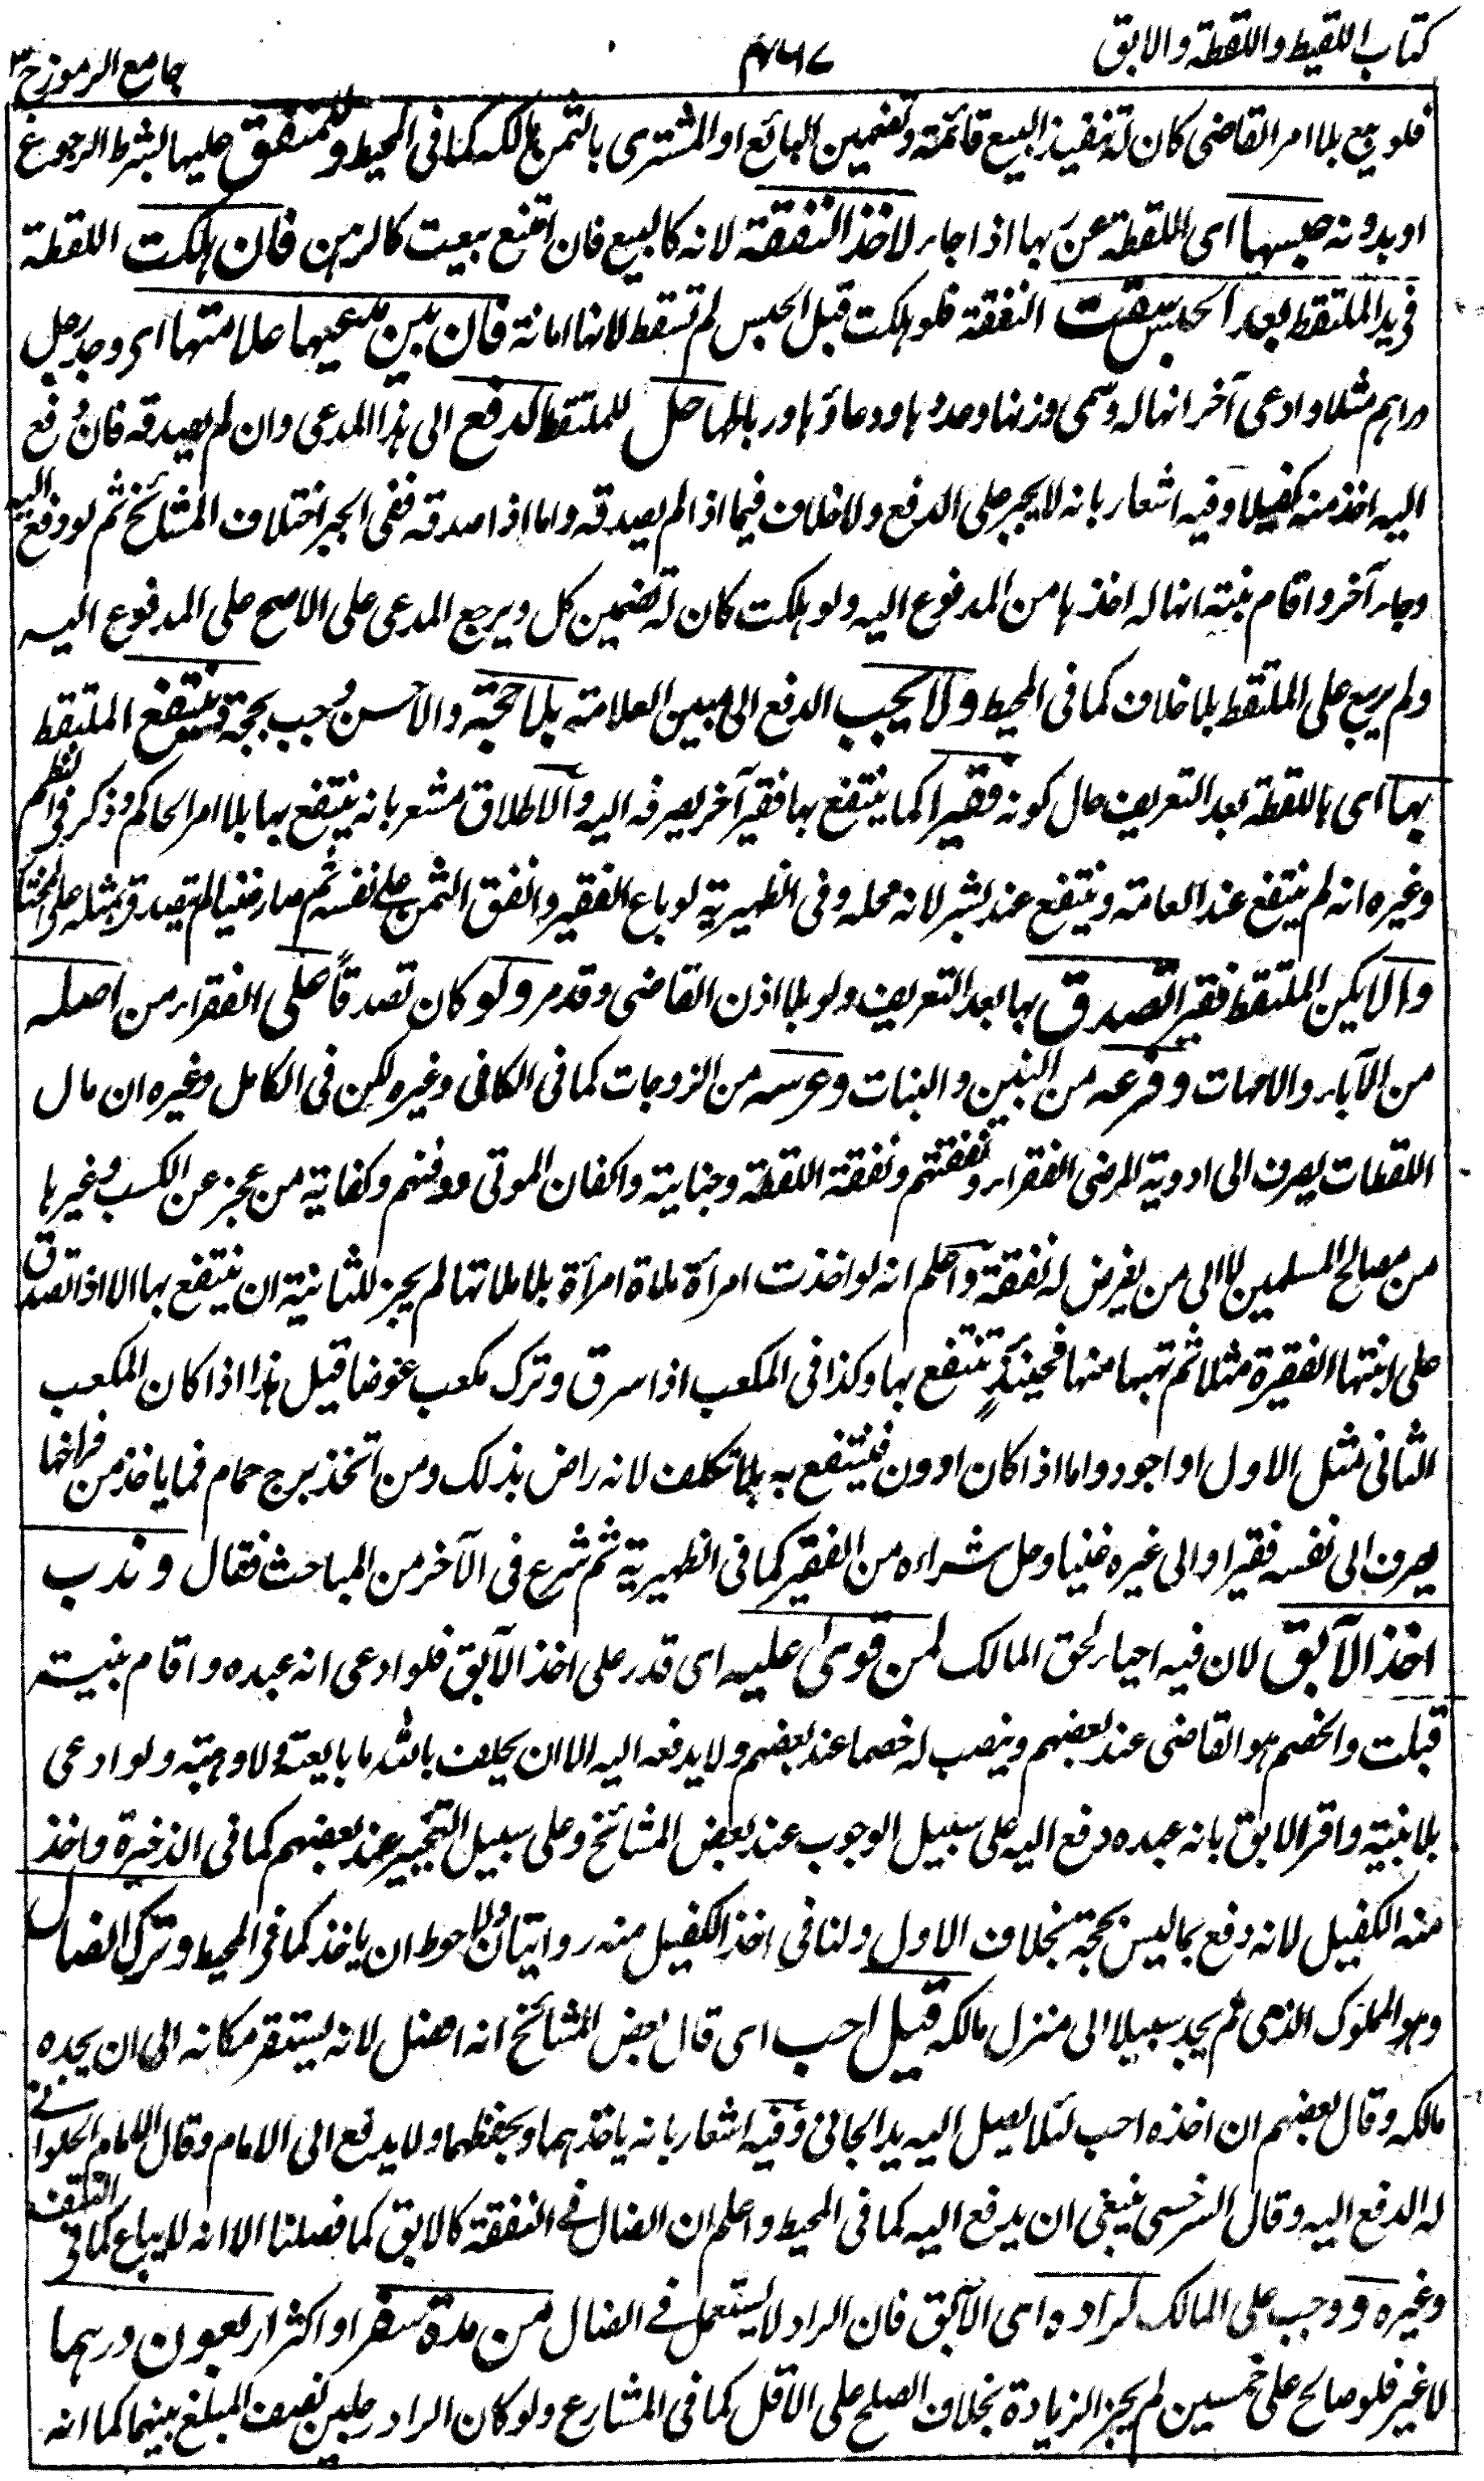 كتاب اللقيط واللقطة والابق
جامع الرموز ج ٣
فلو بيع بلا امر القاضى كان له تنفيذ البيع قائمة وتضمين البائع او المشترى بالثمن هالكة كما فى المحيط وللمنفق عليها بشرط الرجوع
او بدونه حبسها اى اللقطة عن ربها اذا جاء لاخذ النفقة لانه كالبيع فان امتنع بيعت كالرهن فان هلكت اللقطة
فى يد الملتقط بعد الحبس سقطت النفقة فلو هلكت قبل الحبس لم تسقط لانها امانة فان بين مدعيها علامتها اى وجد رجل
دراهم مثلا وادعى آخر انها له وسمى وزنها وعددها ووعاؤها ورباطها حل للملتقط الدفع الى هذا المدعى وان لم يصدقه فان دفع
اليه اخذ منه كفيلا وفيه اشعار بانه لا يجبر على الدفع ولا خلاف فيما اذا لم يصدقه واما اذا صدقه ففى الجبر اختلاف المشائخ ثم لو دفع اليه
وجاء آخر واقام بينة انها له اخذها من المدفوع اليه ولو هلكت كان له تضمين كل ويرجع المدعى على الاصح على المدفوع اليه
ولم يرجع على الملتقط بلا خلاف كما فى المحيط ولا يجب الدفع الى مبين العلامة بلا حجة والاحسن وجب بحجة فينتفع الملتقط
بها اى باللقطة بعد التعريف حال كونه فقيرا كما ينتفع بها فقير آخر يصرفه اليه والاطلاق مشعر بانه ينتفع بها بلا امر الحاكم وذكر فى النظم
وغيره انه لم ينتفع عند العامة وينتفع عند بشر لانه محله وفى الظهيرية لو باع الفقير وانفق الثمن على نفسه ثم صار غنيا لم يتصدق بمثله على المختار
والا يكن الملتقط فقيرا تصدق بها بعد التعريف ولو بلا اذن القاضى وقد مر ولو كان تصدقاً على الفقراء من اصله
من الآباء والامهات وفرعه من البنين والبنات وعرسه من الزوجات كما فى الكافى وغيره لكن فى الكامل وغيره ان مال
اللقطات يصرف الى ادوية المرضى الفقراء ونفقتهم ونفقة اللقطة وجنايته واكفان الموتى ودفنهم وكفاية من عجز عن الكسب وغيرها
من مصالح المسلمين لا الى من يفرض له نفقة واعلم انه لو اخذت امرأة ملاة امرأة بلا ملاتها لم يجز للثانية ان ينتفع بها الا اذا تصدق
على ابنتها الفقيرة مثلا ثم تهبها منها فحينئذٍ تنتفع بها وكذا فى المكعب اذا سرق وترك مكعب عوضا قيل هذا اذا كان المكعب
الثانى مثل الاول او اجود واما اذا كان ادون فينتفع به بلا تكلف لانه راض بذلك ومن اتخذ برج حمام فما ياخذ من فراخها
يصرف الى نفسه فقيرا والى غيره غنيا وحل شراءه من الفقير كما فى الظهيرية ثم شرع فى الآخر من المباحث فقال وندب
اخذ الآبق لان فيه احياء لحق المالك لمن قوى عليه اى قدر على اخذ الآبق فلو ادعى انه عبده واقام بينة
قبلت والخصم هو القاضى عند بعضهم وينصب له خصما عند بعضهم ولا يدفعه اليه الا ان يحلف بالله ما بايعته ولا وهبته ولو ادعى
بلا بينة واقر الابق بانه عبده دفع اليه على سبيل الوجوب عند بعض المشائخ وعلى سبيل التخيير عند بعضهم كما فى الذخيرة واخذ
منه الكفيل لانه دفع بما ليس بحجة بخلاف الاول ولنا فى اخذ الكفيل منه روايتان والاحوط ان ياخذ كما فى المحيط وترك الضال
وهو المملوك الذى لم يجد سبيلا الى منزل مالكه قيل احب اى قال بعض المشائخ انه افضل لانه يستقر مكانه الى ان يجده
مالكه وقال بعضهم ان اخذه احب لئلا يصل اليه يد الجانى وفيه اشعار بانه ياخذهما ويحفظهما ولا يدفع الى الامام وقال الامام الحلوانى
له الدفع اليه وقال السرخسى ينبغى ان يدفع اليه كما فى المحيط واعلم ان الضال فى النفقة كالابق كما فصلنا الا انه لا يباع كما فى النتف
وغيره ووجب على المالك لراده اى الآبق فان الراد لا يستعمل فى الضال من مدة سفر او اكثر اربعون درهما
لا غير فلو صالح على خمسين لم يجز الزيادة بخلاف الصلح على الاقل كما فى المشارع ولو كان الراد رجلين نصف المبلغ بينهما كما انه